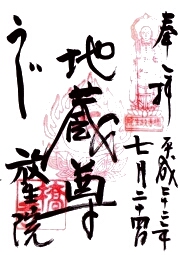 奉拝
平成二十三年
七月二十四日
地蔵尊
うじ
放生院